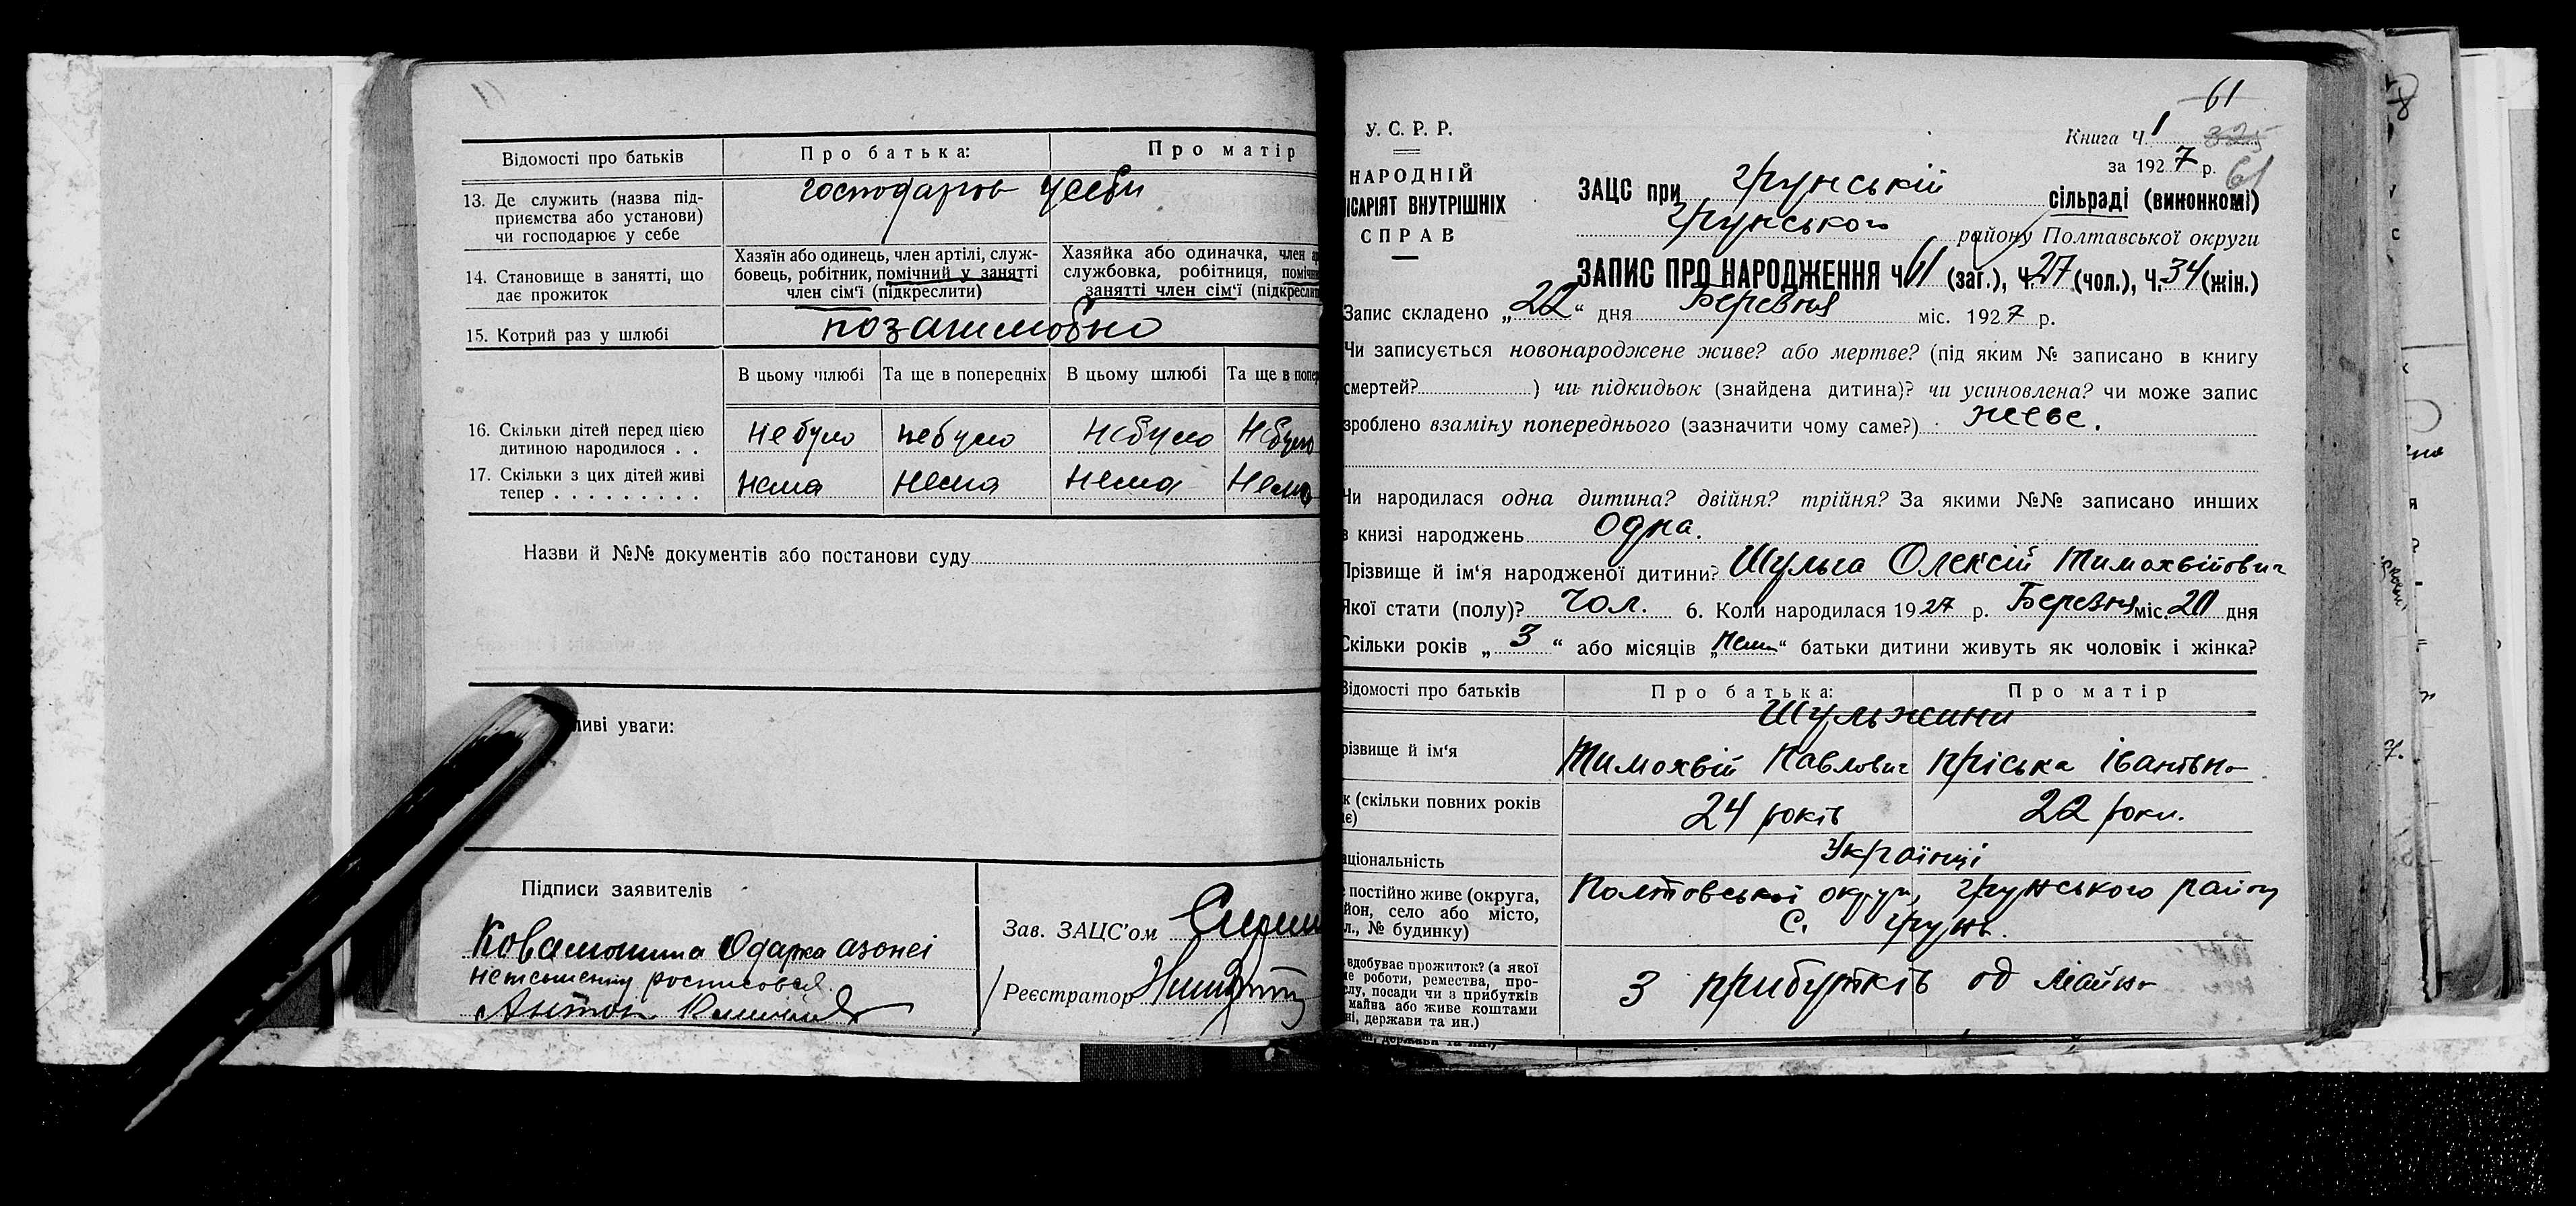 Відомості про батьків
Про батька:
Про матір
13. Де служить (назва під-
приємства або установи)
чи господарює у себе
господарює у себи
14. Становище в занятті, що
дає прожиток
Хазяїн або одинець, член артілі, служ-
бовець, робітник, помічний у занятті
член сім'ї (підкреслити)
Хазяйка або одиначка, член
службовка, робітниця,
занятті член сім'ї
15. Котрий раз у шлюбі
позашлюбно
В цьому шлюбі
Та ще в попередніх
В цьому шлюбі
Та ще в
16. Скільки дітей перед цією
дитиною народилося . .
Небуло небуло Небуло Небуло
17. Скільки з цих дітей живі
тепер . . . . . . . . .
Нема Нема Нема Нема
Назви й №№ документів або постанови суду
уваги:
Підписи заявителів
Одарка азонеі
неписьменну росписовся
Антон
Зав. ЗАЦС'ом
Реєстратор
61
У. С. Р. Р.
Книга Ч. 1 325
за 1927 р. 61
НАРОДНІЙ
ВНУТРІШНІХ
СПРАВ
ЗАЦС при Грунській сільраді (виконкомі)
Грунського району Полтавської округи
ЗАПИС ПРО НАРОДЖЕННЯ Ч. 61 (заг.), Ч. 27 (чол.), Ч. 34 (жін.)
Запис складено „22“ дня Березня міс. 1927 р.
Чи записується новонароджене живе? або мертве? (під яким № записано в книгу
смертей? ) чи підкидьок (знайдена дитина)? чи усиновлена? чи може запис
зроблено взаміну попереднього (зазначити чому саме?) живе.
Чи народилася одна дитина? двійня? трійня? За якими №№ записано инших
в книзі народжень Одна.
Прізвище й ім'я народженої дитини? Шульга Олексій Тимохвійович
Якої стати (полу)? Чол. 6. Коли народилася 1927 р. Березня міс. 20 дня
Скільки років „3“ або місяців „нема“ батьки дитини живуть як чоловік і жінка?
Відомості про батьків
Про батька:
Про матір
Шульжини
різвище й ім'я
Тимохвій Павлович
Пріська Іванівна
(скільки повних років
24 років
22 роки.
аціональність
Українці
постійно живе (округа,
йон, село або місто,
л., № будинку)
Полтовської округи, Грунського району
С. Грунь.
вдобуває прожиток? (з якої
роботи, ремества, про-
слу, посади чи з прибутків
майна або живе коштами
держави та ин.)
З прибутків од майна